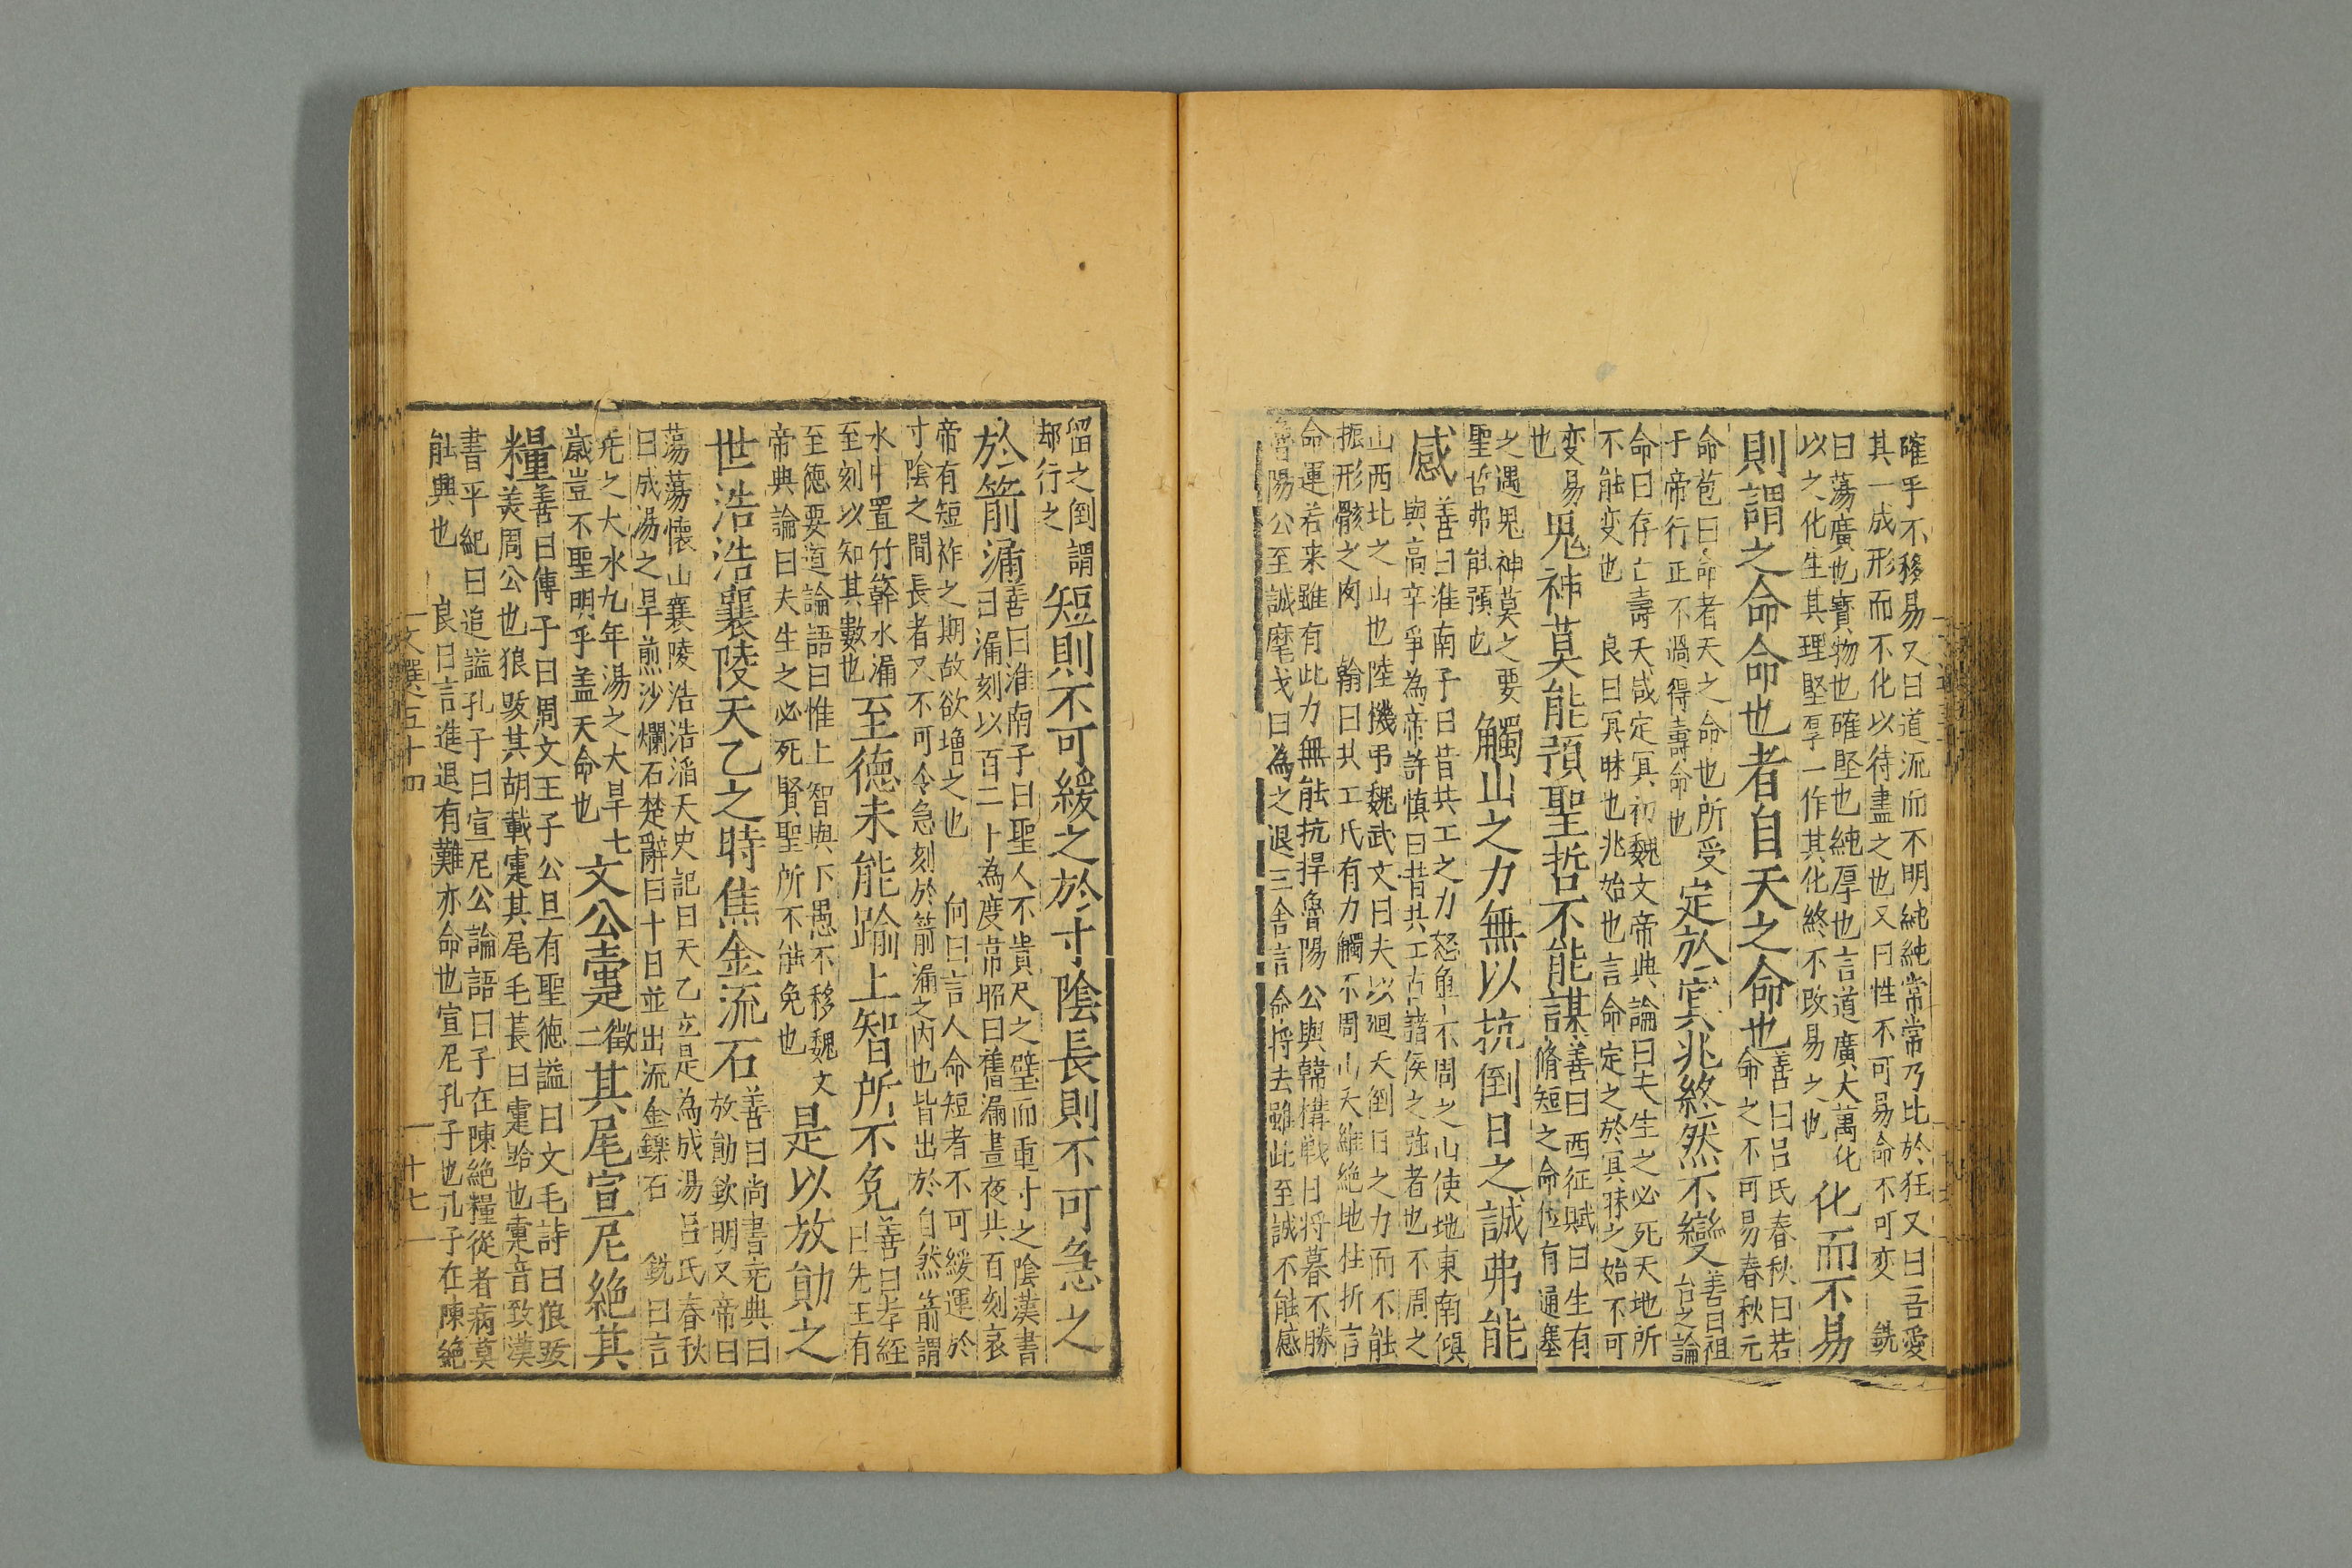 確乎不移易又曰道流而不明純純常常乃比於狂又曰吾愛
其一成形而不化以待盡之也又曰性不可易命不可变 銑
曰蕩廣也寶物也確堅也純厚也言道廣大萬化
以之化生其理堅孚一作其化終不改易之也
化而不易
則謂之命命也者自天之命也
善曰呂氏春秋曰若
命之不可易春秋元
命苞曰命者天之命也所受
于帝行正不過得壽命也
定於冥兆終然不變
善曰祖
台之論
命曰存亡壽夭咸定冥初魏文帝典論曰夫生之必死天地所
不能变也 良曰冥昧也兆始也言命定之於冥昧之始不可
变易
也
鬼神莫能預聖哲不能謀
善曰西征賦曰生有
脩短之命位有通塞
之遇鬼神莫之要
聖哲弗能預也
觸山之力無以抗倒日之誠弗能
感
善曰淮南子曰昔共工之力怒觸不周之山使地東南傾
與高辛爭為帝許慎曰昔共工古諸侯之強者也不周之
山西北之山也陸機弔魏武文曰夫以廻天倒日之力而不能
振形骸之内 翰曰共工氏有力觸不周山天維絶地柱折言
命運若来雖有此力無能抗捍魯陽公與韓構戦日将暮不勝
魯陽公至誠麾戈日為之退三舎言命将去雖此至誠不能感
留之倒謂
却行之
短則不可緩之於寸陰長則不可急之
於箭漏
善曰淮南子曰聖人不貴尺之璧而重寸之陰漢書
曰漏刻以百二十為度韋昭曰舊漏晝夜共百刻哀
帝有短祚之期故欲増之也 向曰言人命短者不可緩運於
寸陰之間長者又不可令急刻於箭漏之内也皆出於自然箭謂
水中置竹簳水漏
至刻以知其數也
至徳未能踰上智所不免
善曰孝經
曰先王有
至徳要道論語曰惟上智與下愚不移魏文
帝典論曰夫生之必死賢聖所不能免也
是以放勛之
世浩浩襄陵天乙之時焦金流石
善曰尚書尭典曰
放勛欽明又帝曰
蕩蕩懷山襄陵浩浩滔天史記曰天乙立是為成湯呂氏春秋
曰成湯之旱煎沙爛石楚辭曰十日並出流金鑠石 銑曰言
尭之大水九年湯之大旱七
歳豈不聖明乎盖天命也
文公疐
徵
二
其尾宣尼絶其
糧
善曰傳子曰周文王子公旦有聖徳謚曰文毛詩曰狼跋
美周公也狼跋其胡載疐其尾毛萇曰疐跲也疐音致漢
書平紀曰追謚孔子曰宣尼公論語曰子在陳絶糧從者病莫
能興也 良曰言進退有難亦命也宣尼孔子也孔子在陳絶
文選五十四
十七